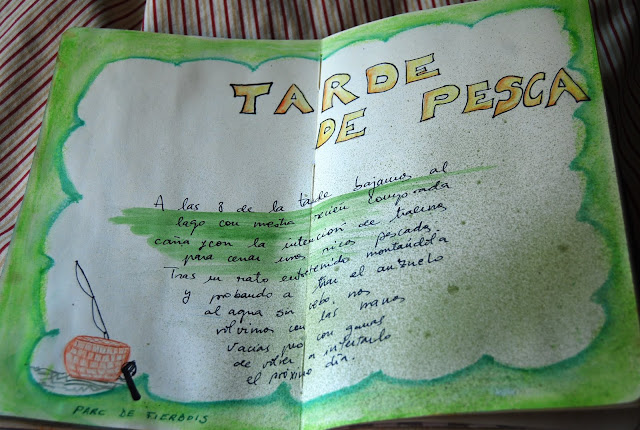 TARDE
DE PESCA
A las 8 de la tarde bajamos al
lago con nuestra recién comprada
caña y con la intención de traernos
para cenar unos ricos pescados.
Tras un rato entretenido montándola
y probando a tirar el anzuelo
al agua sin cebo, nos
volvimos con las manos
vacías pero con ganas
de volver a intentarlo
el próximo día.
PARC DE FIERBOIS